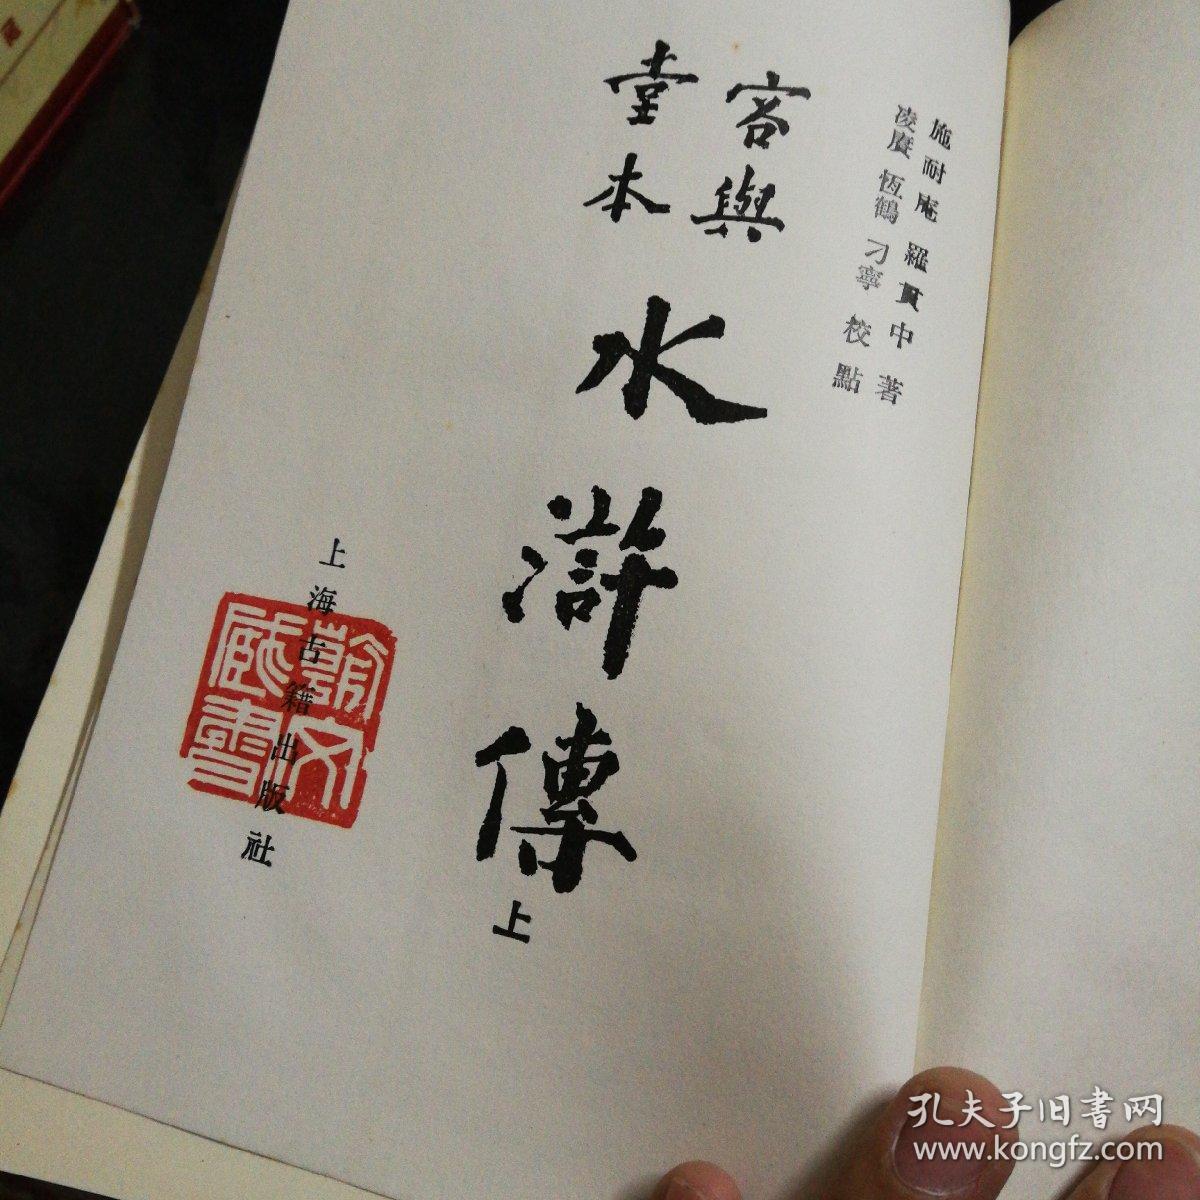 施耐庵 羅貫中 著
凌賡 恆鶴 刁寧 校點
容與
堂本
水滸傳
上
上海古籍出版社
翰文
藏書
孔夫子旧書网
www.kongfz.com